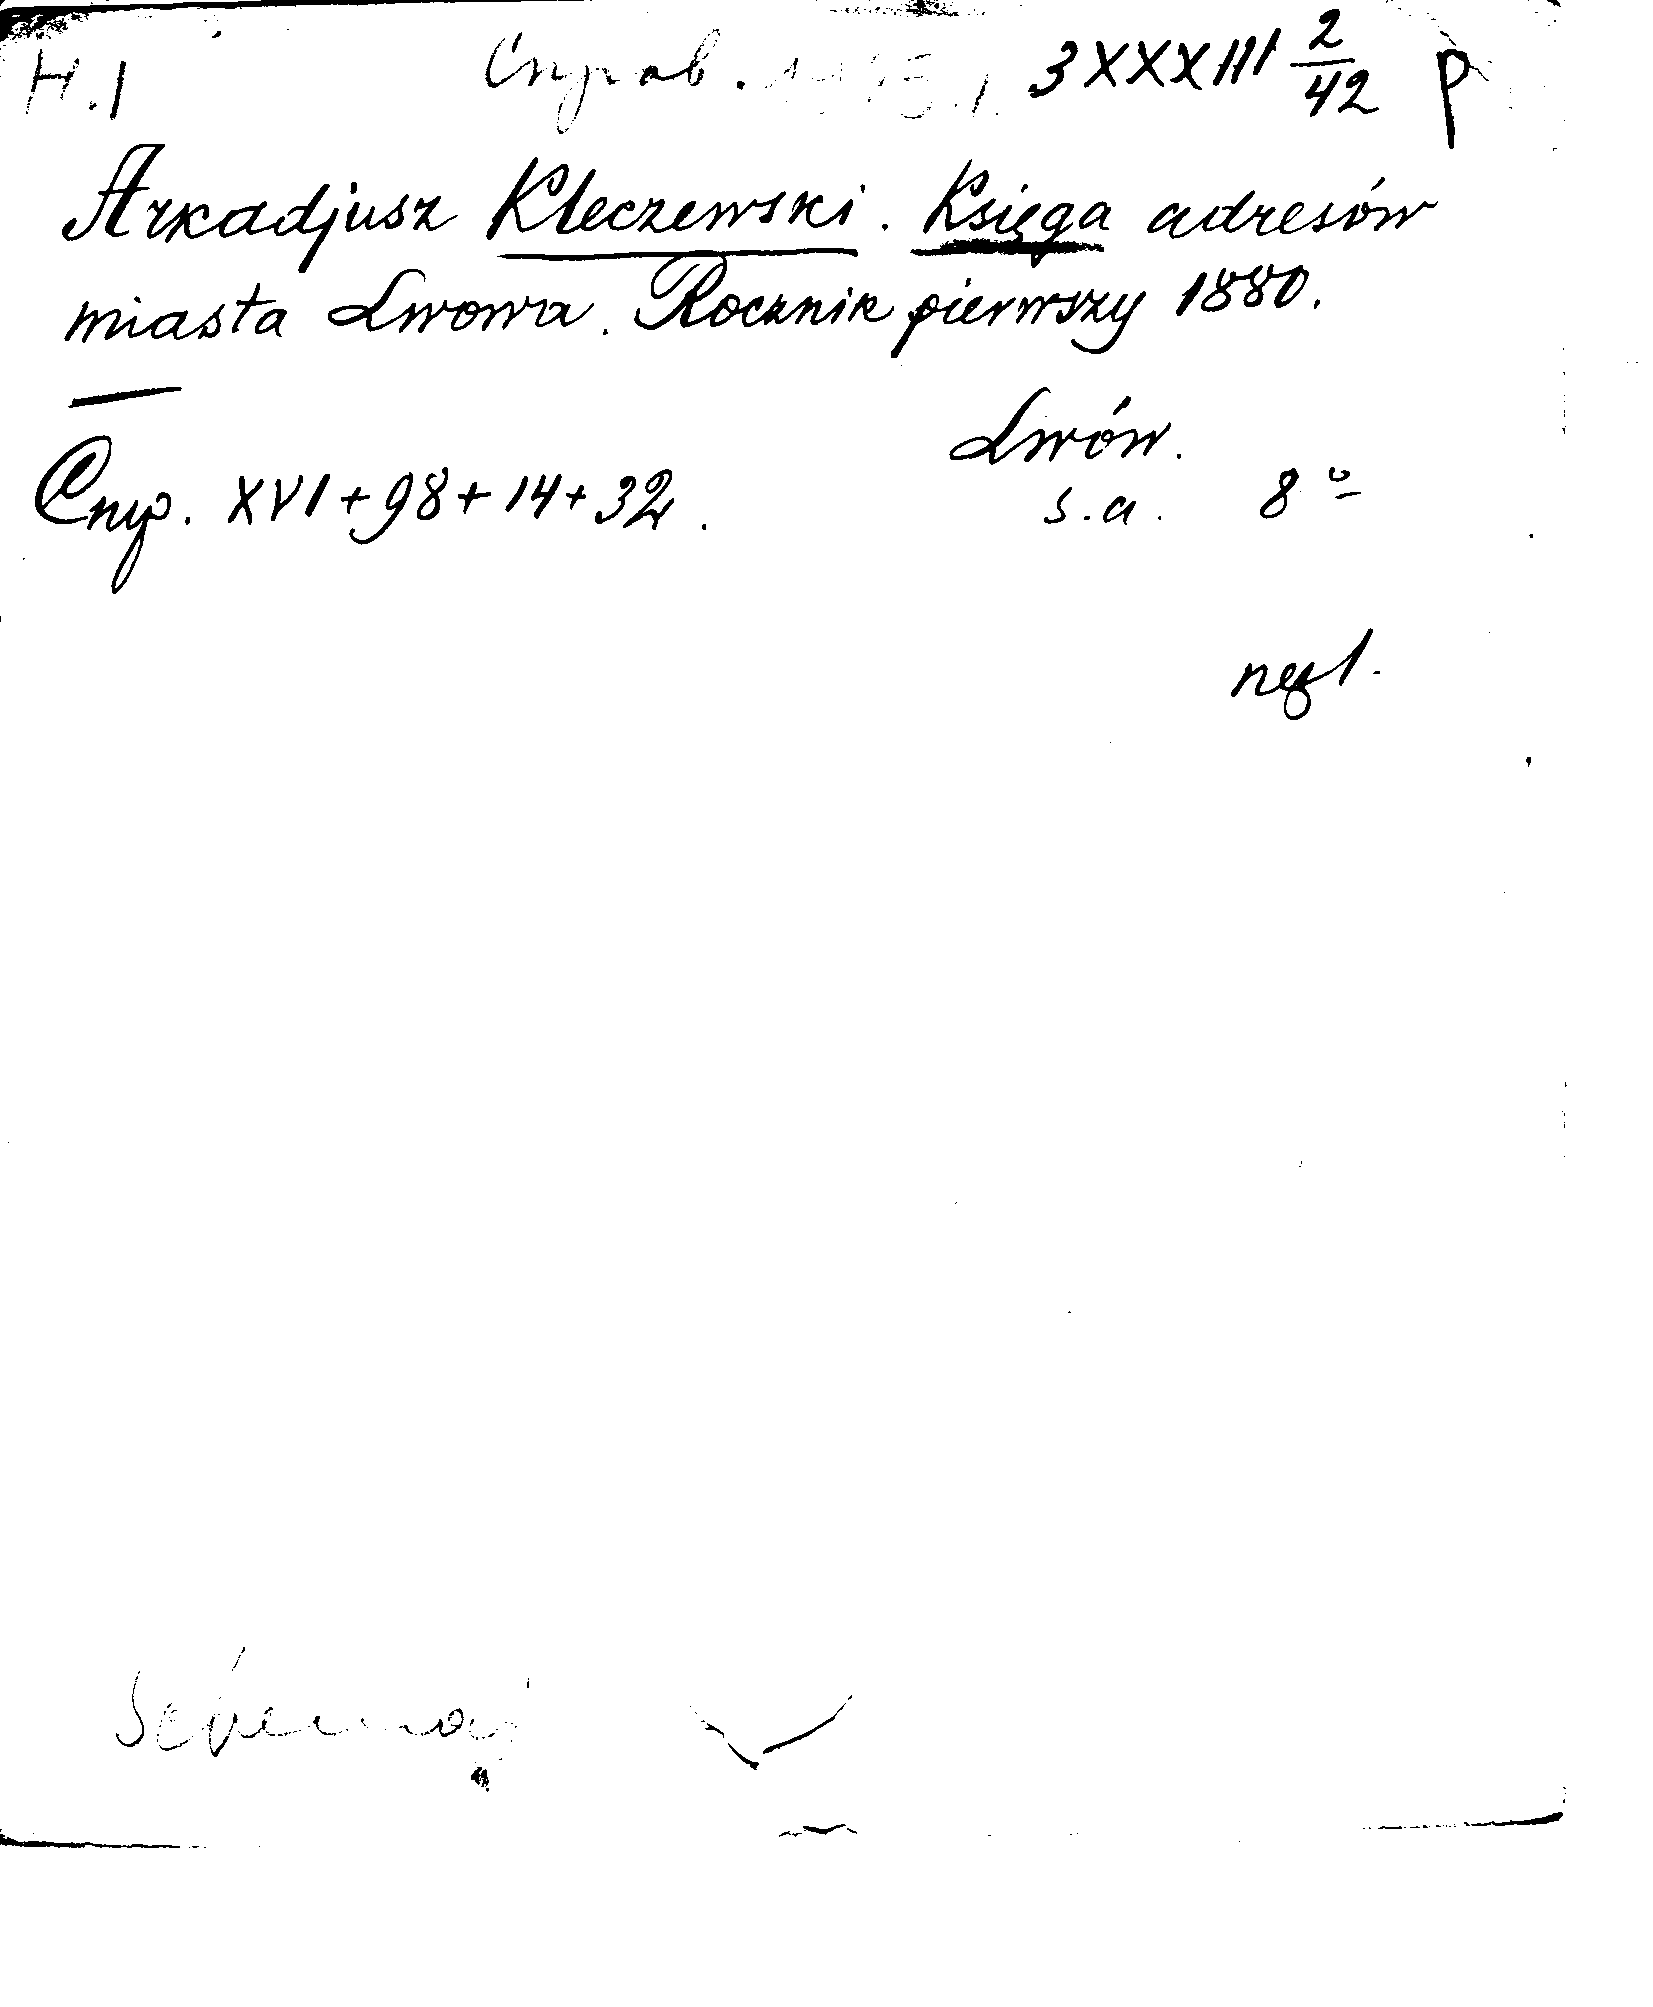 Н.1 Справ. 3 XXXIII 2/42 р
Arkadjusz Kleczewski. Księga adresów
miasta Lwowa. Rocznik pierwszy 1880.
Lwów.
Стр. XVI+98+14+32. s.a. 8º